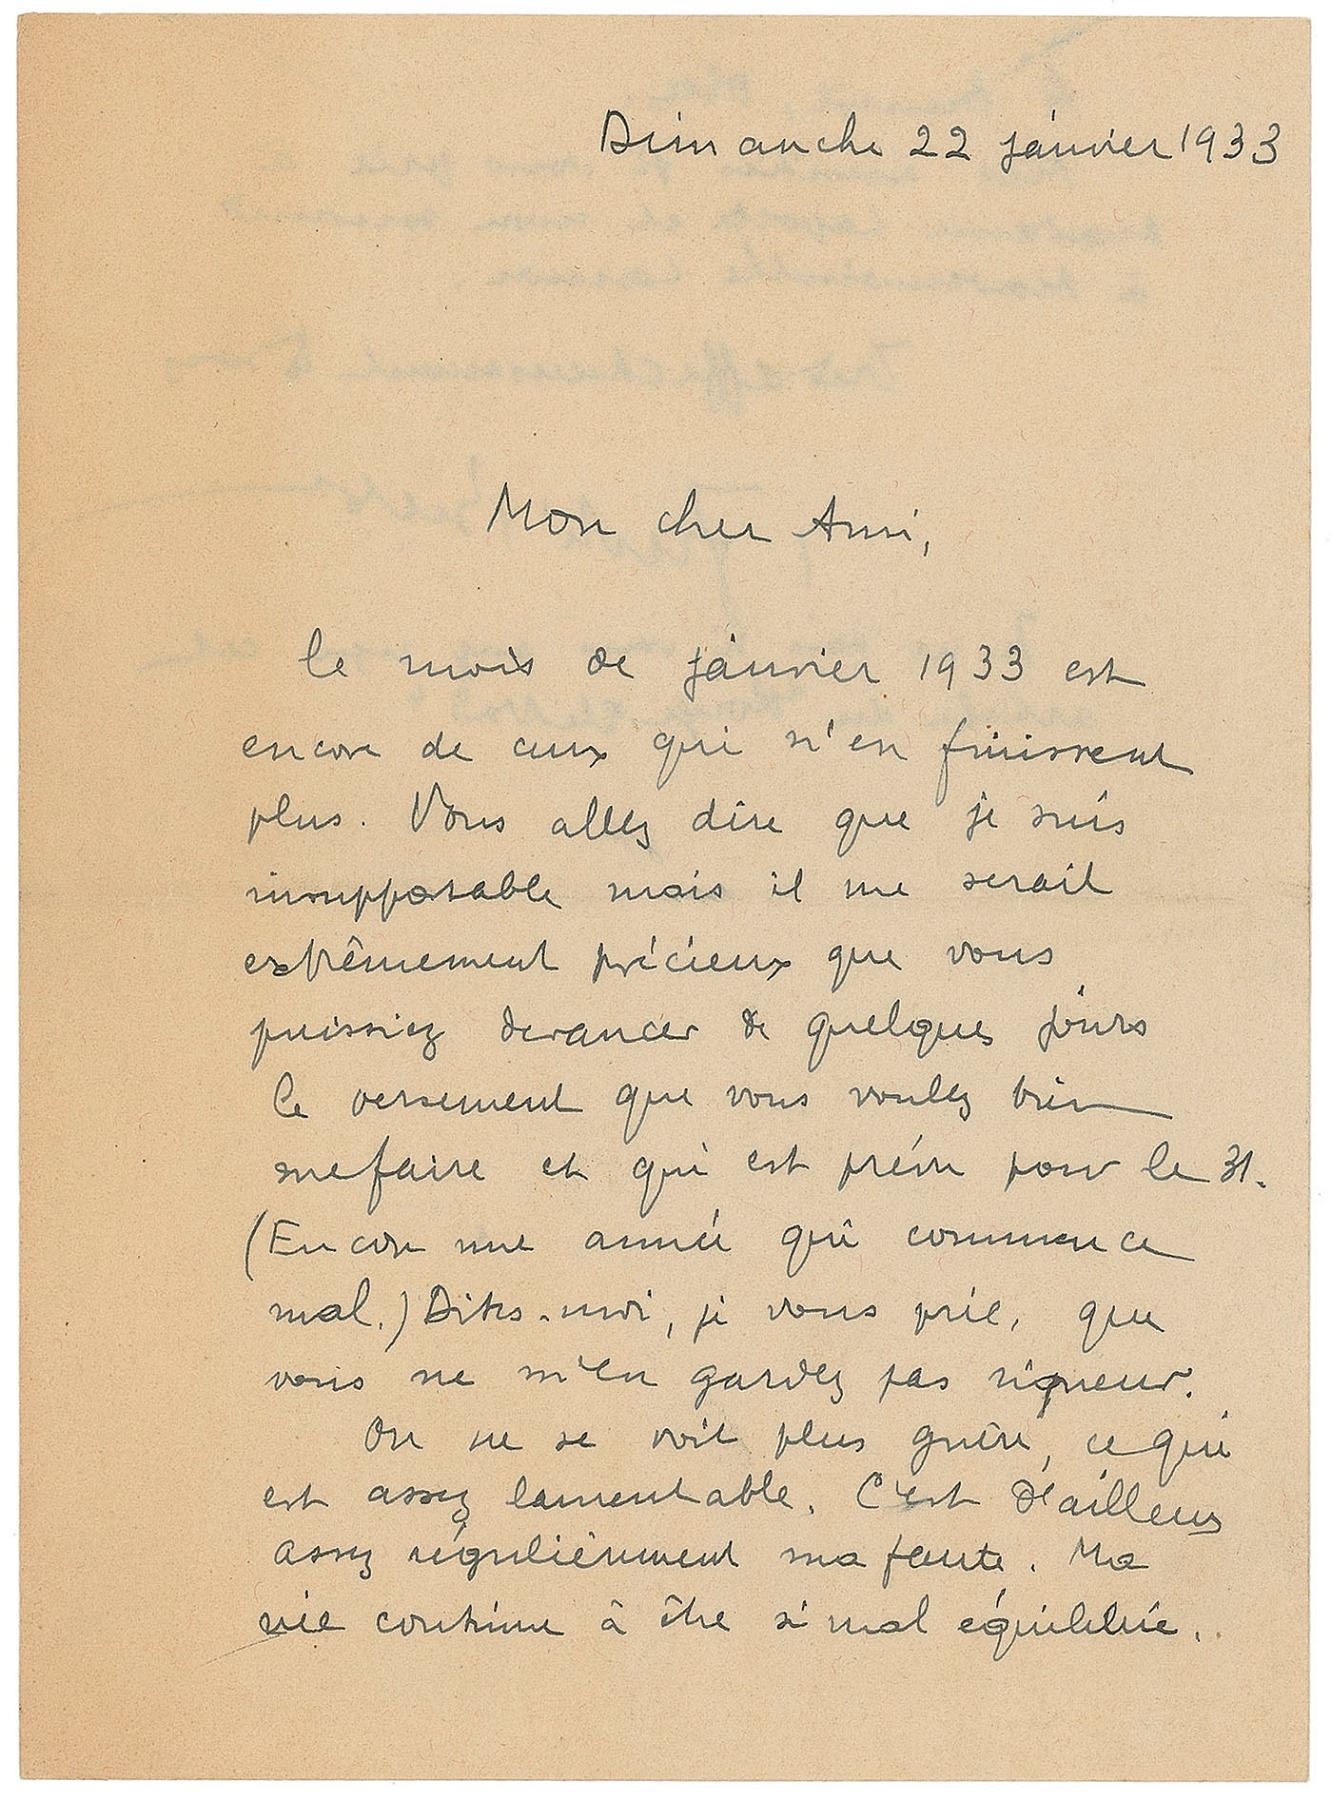 Dimanche 22 janvier 1933
Mon cher Ami,
le mois de janvier 1933 est
encore de ceux qui n'en finissent
plus. Vous allez dire que je suis
insupportable mais il me serait
extrêmement précieux que vous
puissiez devancer de quelques jours
le versement que vous voulez bien
me faire et qui est prévu pour le 31.
(Encore une année qui commence
mal.) Dites-moi, je vous prie, que
vous ne m'en gardez pas rigueur.
On ne se voit plus guère, ce qui
est assez lamentable. C'est d'ailleurs
assez régulièrement ma faute. Ma
vie continue à être si mal équilibrée.